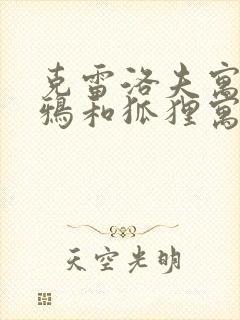 克雷洛夫寓
鸦和狐狸寓
天空光明